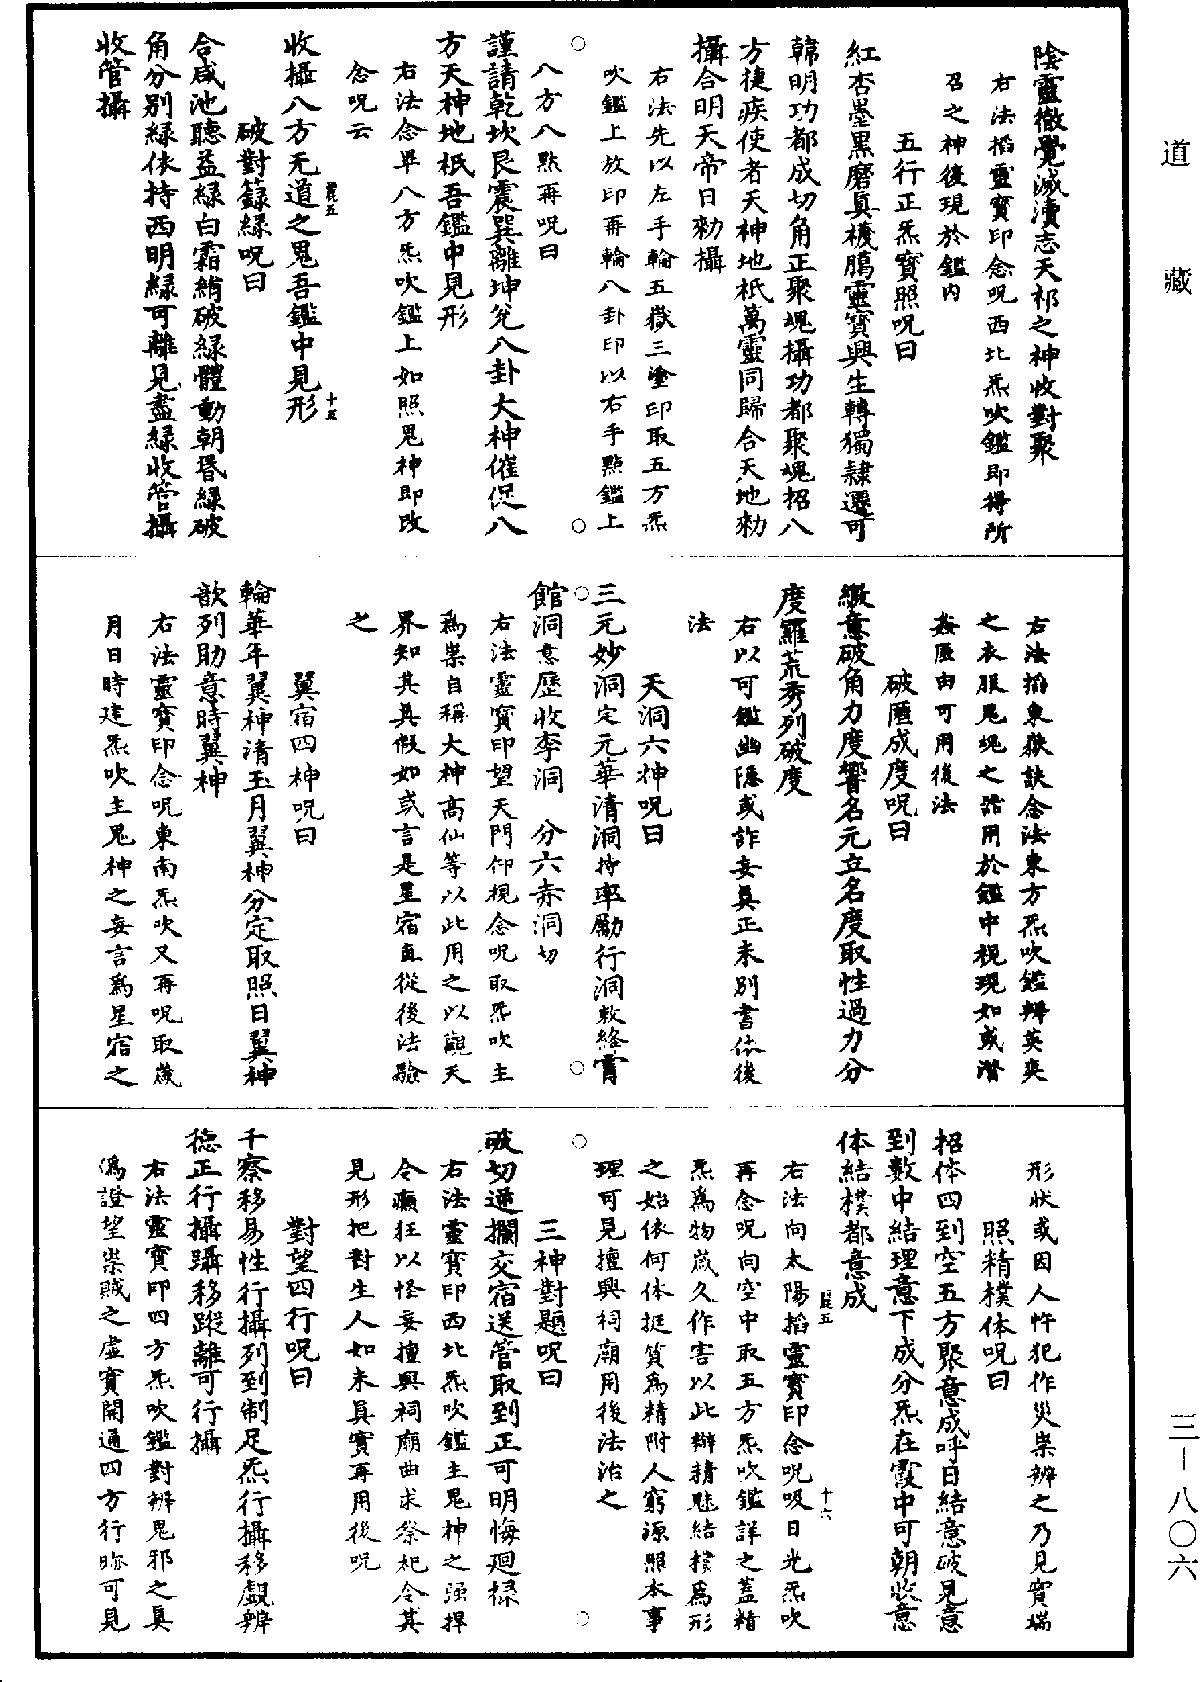 道藏
三—八〇六
陰靈徹覺減瀆志天祁之神收對聚
右法掐靈寶印念呪西北炁吹鑑即得所
召之神後現於鑑内
五行正炁寶照呪曰
紅杏墨黒磨真機鵬靈寶興生轉獨隷遷可
韓明功都成切角正聚塊攝功都聚塊招八
方捷疾使者天神地祇萬靈同歸合天地勑
攝合明天帝日勑攝
右法先以左手輪五嶽三塗印取五方炁
吹鑑上放印再輪八卦印以右手點鑑上
八方八點再呪曰
謹請乾坎艮震巽離坤兌八卦大神催促八
方天神地祇吾鑑中見形
右法念畢八方炁吹鑑上如照鬼神即改
念呪云
收攝八方无道之鬼吾鑑中見形
十五
破對籙緑呪曰
合咸池聽益緑白霜綃破緑體動朝昏緑破
角分別緑依持西明緑可離見盡緑收管攝
收管攝
右法掐東嶽訣念法東方炁吹鑑辨英爽
之衣服鬼塊之詣用於鑑中視現如或潛
姦匿由可用後法
破匿成度呪曰
緻意破角力度響名元立名度取性過力分
度羅荒秀列破度
右以可鑑幽隱或詐妄真正未別書依後
法
天洞六神呪曰
三元妙洞定元華清洞持率勵行洞敕絳霄
館洞意歷收李洞 分六赤洞切
右法靈寶印望天門仰視念呪取炁吹主
爲祟自稱大神高仙等以此用之以觀天
界知其真假如或言是星宿直從後法驗
之
翼宿四神呪曰
輪華年翼神清玉月翼神分定取照日翼神
歆列助意時翼神
右法靈寶印念呪東南炁吹又再呪取歲
月日時建炁吹主鬼神之妄言爲星宿之
形狀或因人忤犯作災祟辨之乃見實端
照精樸体呪曰
招体四到空五方聚意成呼日結意破見意
到數中結理意下成分炁在霞中可朝收意
体結樸都意成
右法向太陽掐靈寶印念呪吸日光炁吹
十六
再念呪向空中取五方炁吹鑑詳之蓋精
炁爲物歲久作害以此辨精魅結樸爲形
之始依何体挺質爲精附人窮源照本事
理可見擅興祠廟用後法治之
三神對題呪曰
破切遁攔交宿送管取到正可明悔廻禄
右法靈寶印西北炁吹鑑主鬼神之强捍
令癲狂以怪妄擅興祠廟曲求祭祀令其
見形把對生人如未真實再用後呪
對望四行呪曰
千察移易性行攝列到制足炁行攝移覷辨
德正行攝躡移蹤離可行攝
右法靈寶印四方炁吹鑑對辨鬼邪之真
僞證望祟賊之虛實開通四方行眎可見